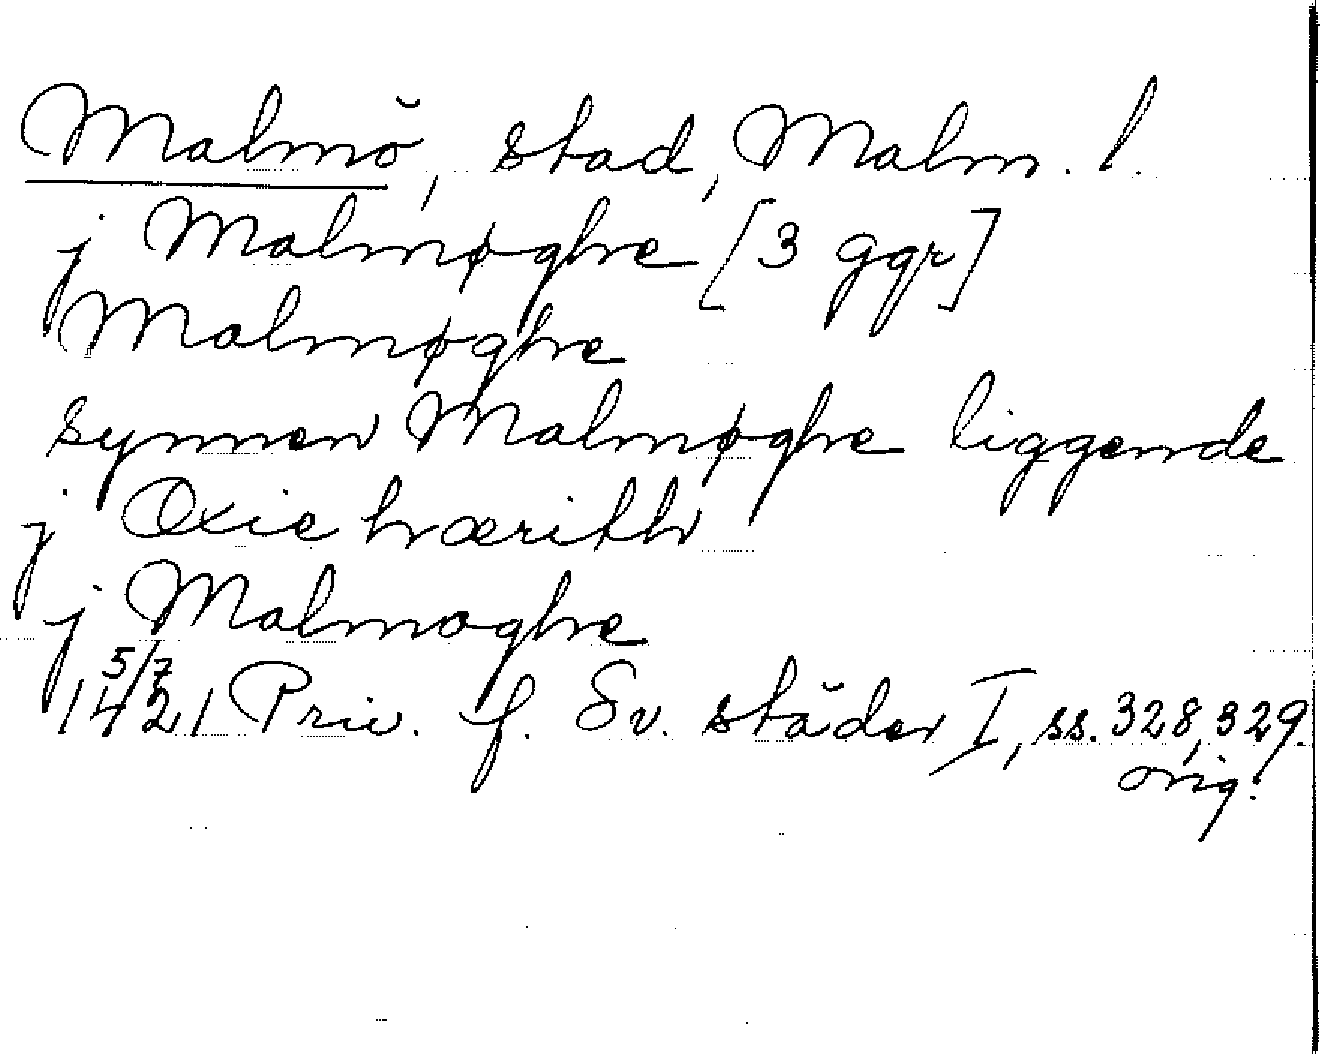 Malmö, stad, Malm. l.
j Malmøghe [3 ggr]
Malmøghe
synnen Malmøghe liggende
j Oxie hæerith
j Malmoghe
5/7
1421 Priv. f. Sv. städer I, ss. 328, 329.
orig.